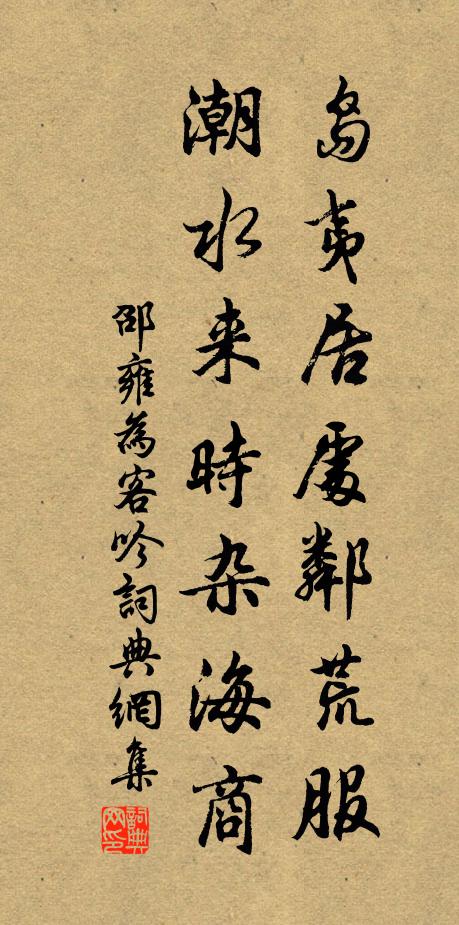 岛夷居處鄰荒服
潮水来時杂海商
邵雍為客吟詞典網集
詞典網印